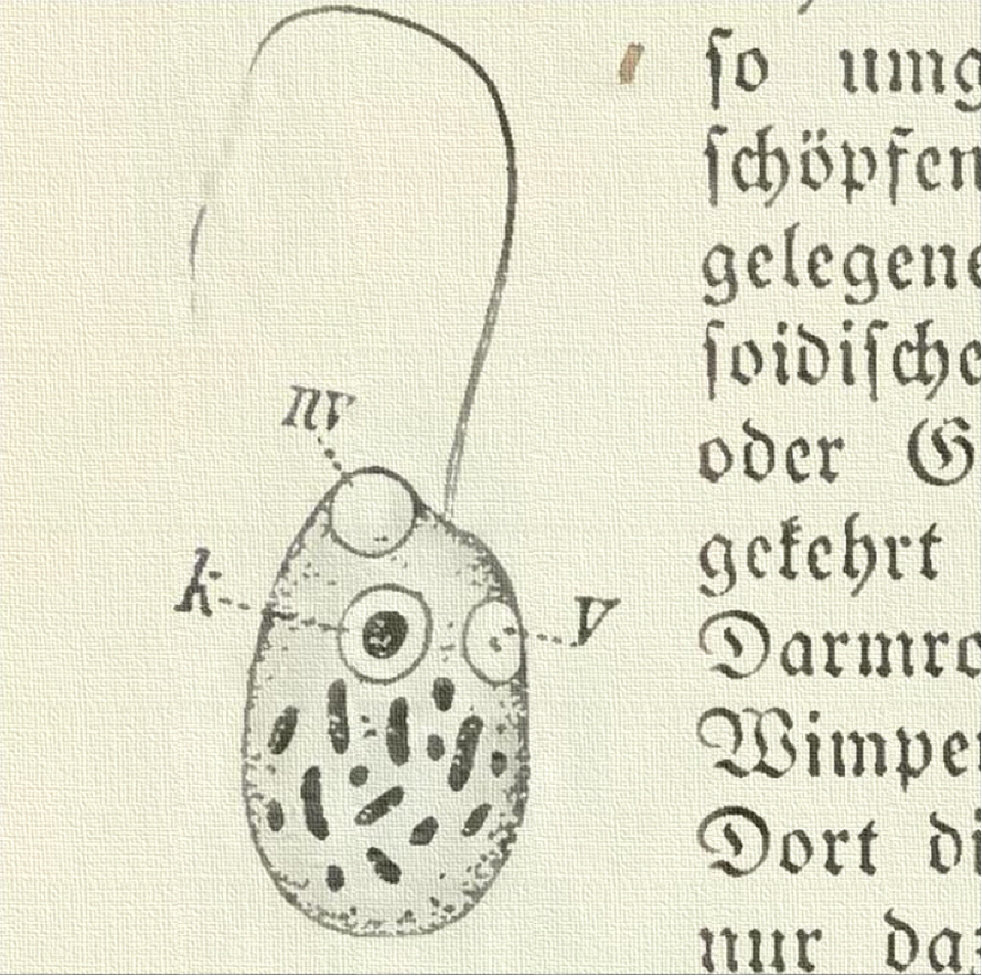 nv
k
v
ſo umg
ſchöpfen
gelegene
ſoidiſche
oder G
gekehrt
Darmro
Wimper
Dort di
nur da